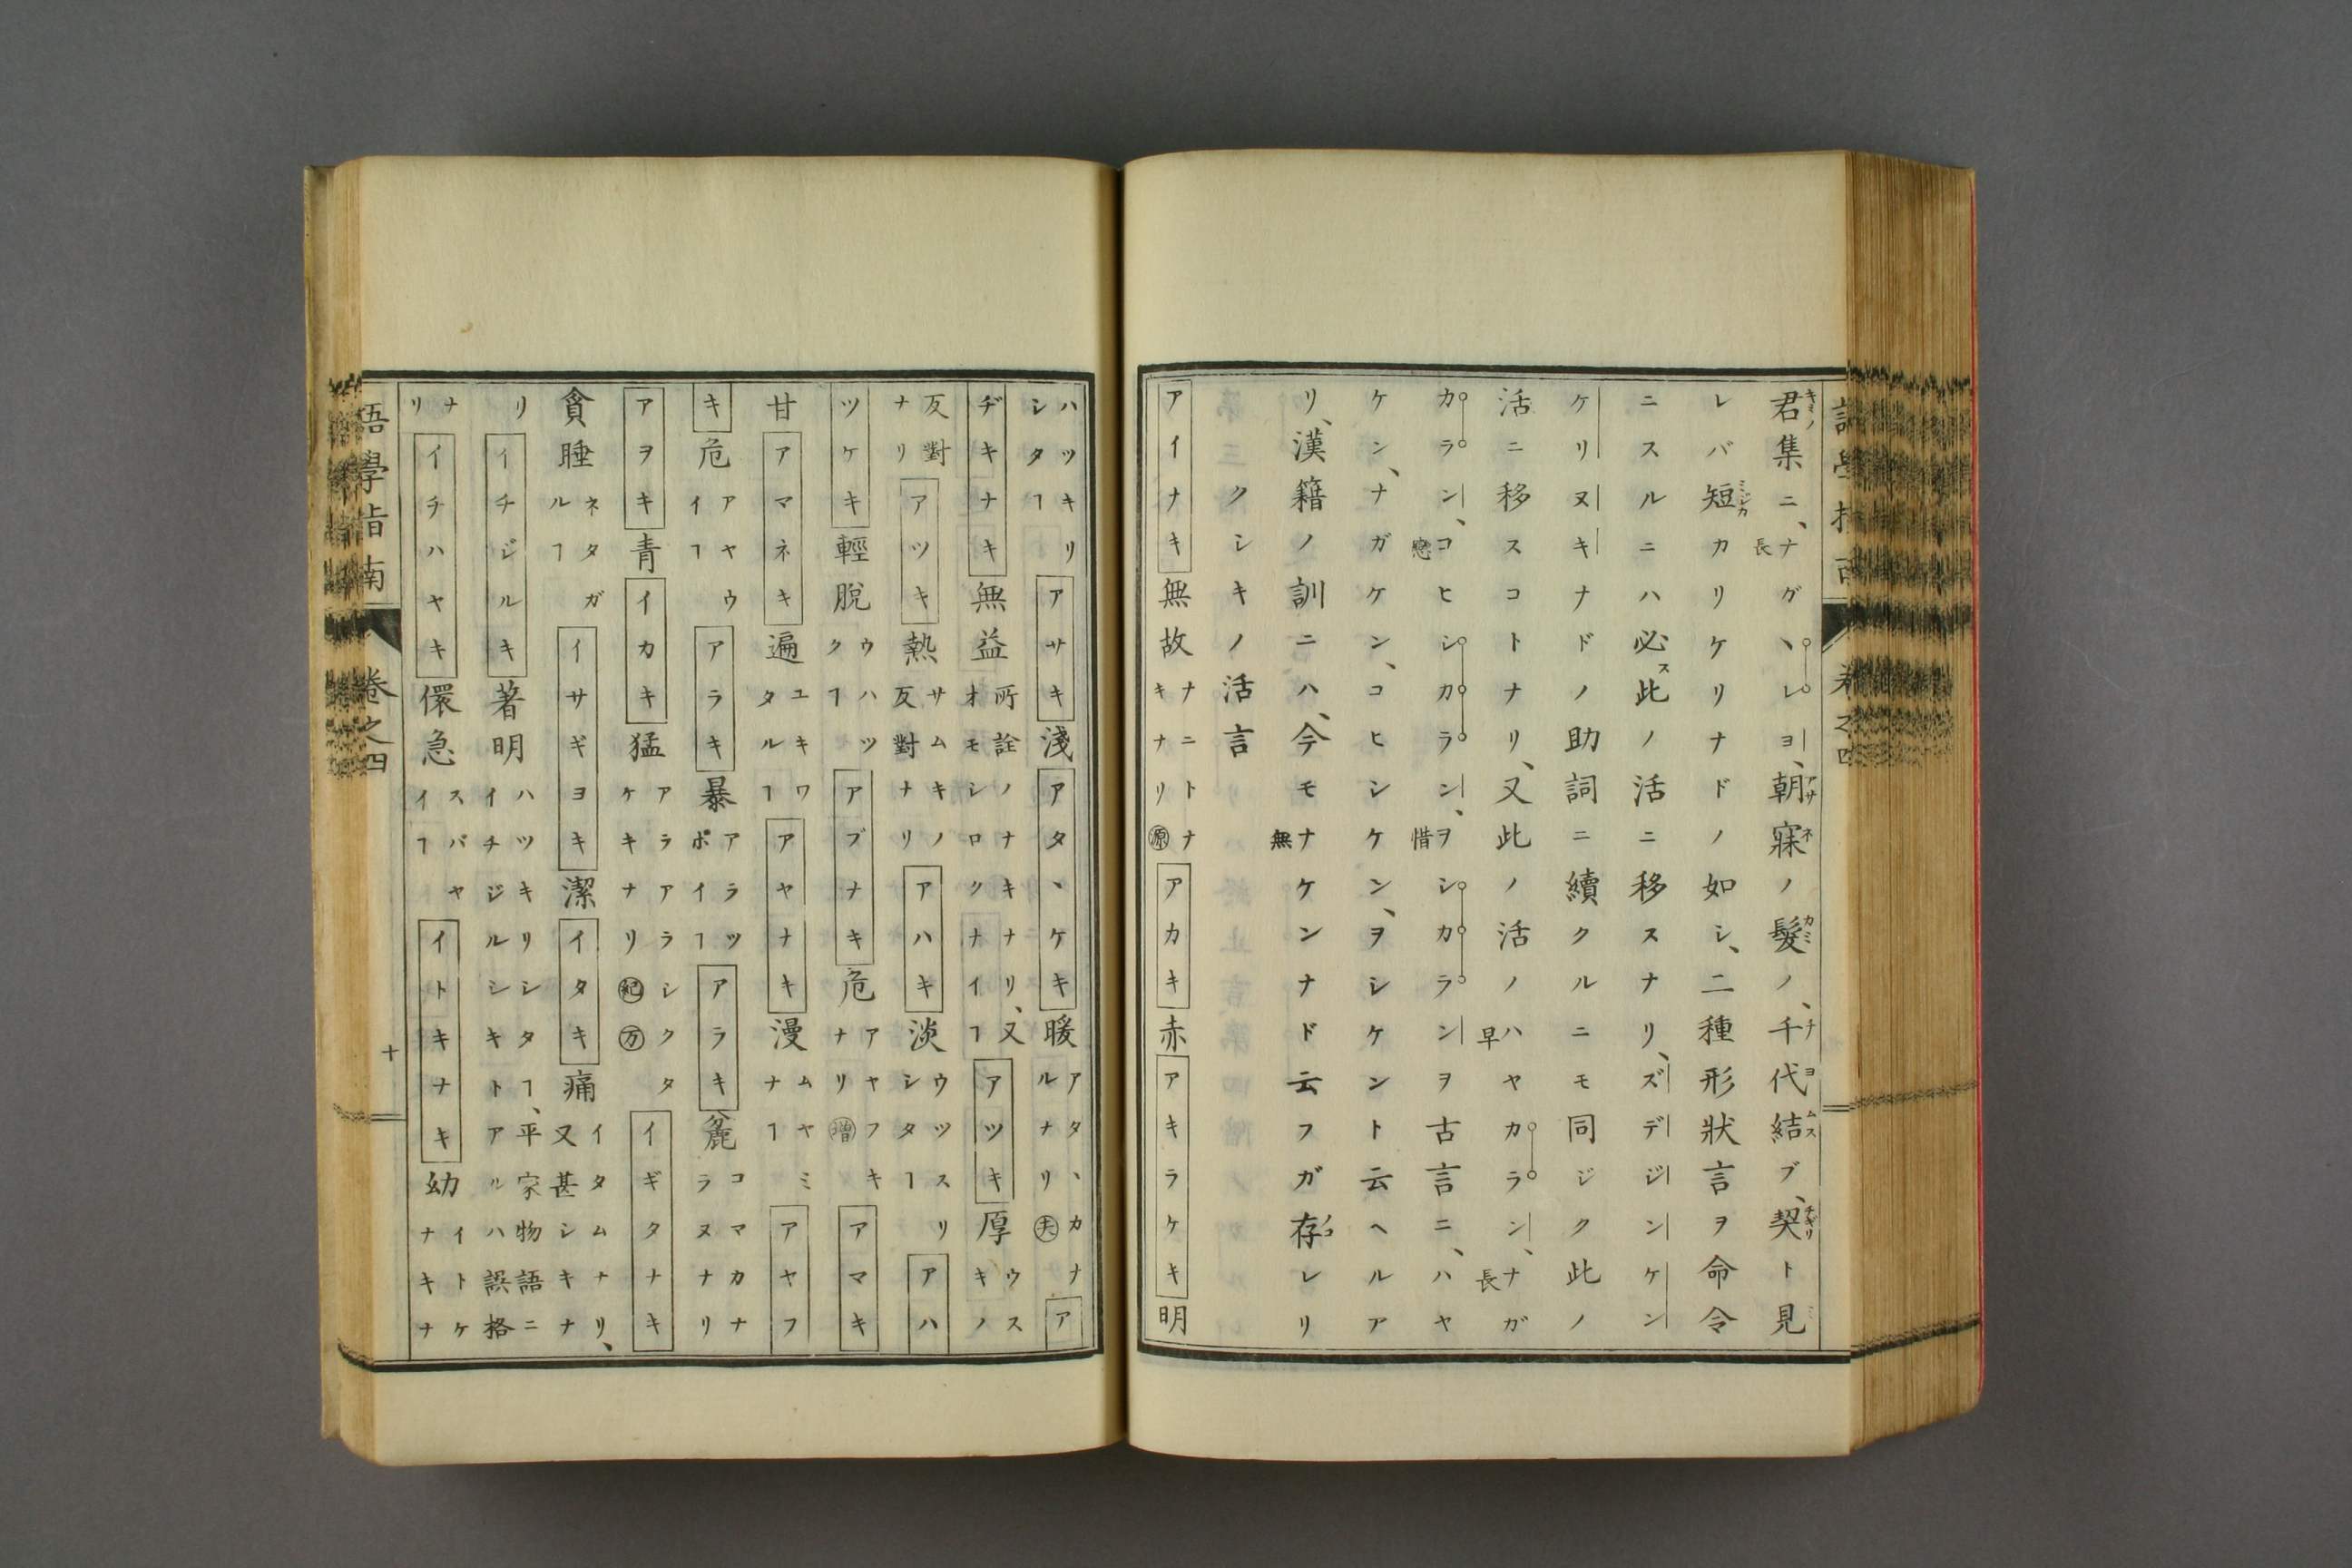 君集ニ、ナガヽレヨ、朝寐ノ髮ノ、千代結ブ、契ト見
レバ短カリケリナドノ如シ、二種形狀言ヲ命令
ニスルニハ必此ノ活ニ移スナリ、ズデジンケン
ケリヌキナドノ助詞ニ續クルニモ同ジク此ノ
活ニ移スコトナリ、又此ノ活ノハヤカラン、ナガ
カラン、コヒシカラン、ヲシカランヲ古言ニ、ハヤ
ケン、ナガケン、コヒシケン、ヲシケント云ヘルア
リ、漢籍ノ訓ニハ、今モナケンナド云フガ存レリ
クシキノ活言
アイナキ無故ナニトナキナリ源アカキ赤アキラケキ明
ハツキリシタヿアサキ淺アタヽケキ暖アタヽカナルナリ夫ア
ヂキナキ無益所詮ノナキナリ、又オモシロクナイヿアツキ厚ウスキノ
反對ナリアツキ熱サムキノ反對ナリアハキ淡ウツスリシタヿアハ
ツケキ輕脫ウハツクヿアブナキ危アヤフキナリ増アマキ
甘アマネキ遍ユキワタルヿアヤナキ漫ムヤミナヿアヤフ
キ危アヤウイヿアラキ暴アラツポイヿアラキ麁コマカナラヌナリ
アヲキ青イカキ猛アラアラシクタケキナリ紀万イギタナキ
貪睡ネタガルヿイサギヨキ潔イタキ痛イタムナリ、又甚シキナ
リイチジルキ著明ハツキリシタヿ、平家物語ニイチジルシキトアルハ誤格
ナリイチハヤキ儇急スバヤイヿイトキナキ幼イトケナキナ
語學指南
卷之四
十